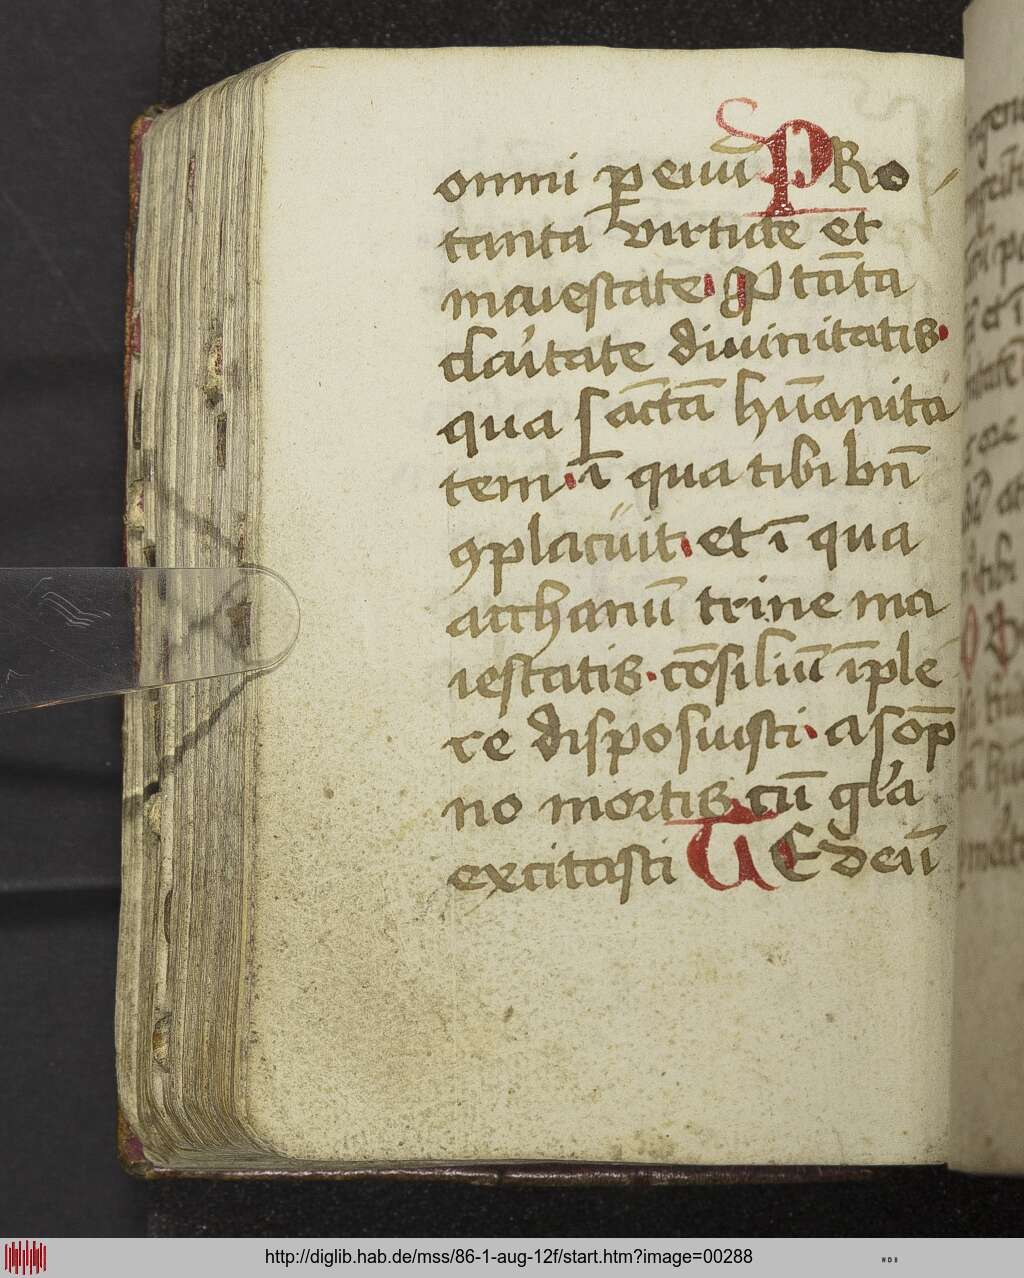 omni ꝑ euū PRo
tanta virtute et
maiestate · P tāta
claritate diuinitatis ·
qua sāctā hūanita
tem · ī qua tibi bn̄
ꝯplacuit · et ī qua
archanū trine ma
iestatis · cōsiliū īple
re disposuisti · a sop̄
no mortis cū gl'a
excitasti TE deū
http://diglib.hab.de/mss/86-1-aug-12f/start.htm?image=00288